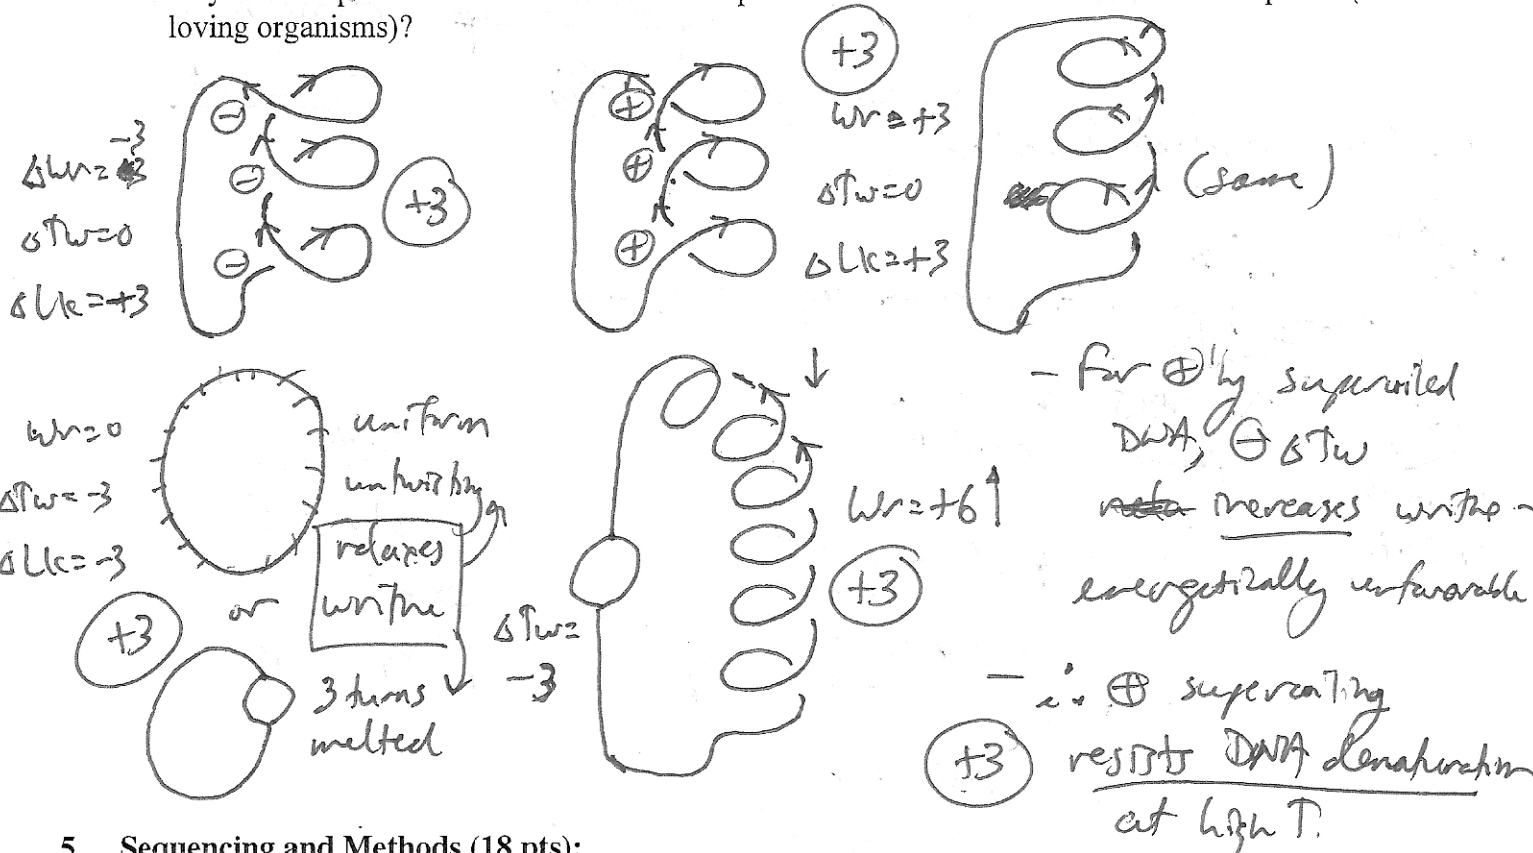 loving organisms)?
+3
-3
ΔWr=
ΔTw=0
ΔLk=+3
⊖
⊖
⊖
+3
⊕
⊕
⊕
Wr=+3
ΔTw=0
ΔLk=+3
(same)
Wr=0
ΔTw=-3
ΔLk=-3
uniform
untwisting
relaxes
writhe
or
+3
3 turns
melted
↓
Wr=+6↑
+3
ΔTw=
-3
- For ⊕'ly supercoiled
DNA, ⊖ ΔTw
increases writhe -
energetically unfavorable
- ∴ ⊕ supercoiling
+3
resists DNA denaturation
at high T.
5 Sequencing and Methods (18 pts):